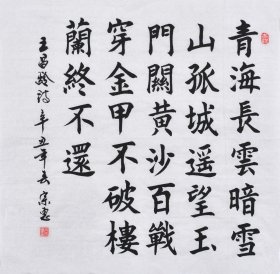 青海長雲暗雪
山孤城遥望玉
門關黄沙百戰
穿金甲不破樓
蘭終不還
王昌齡詩辛丑年